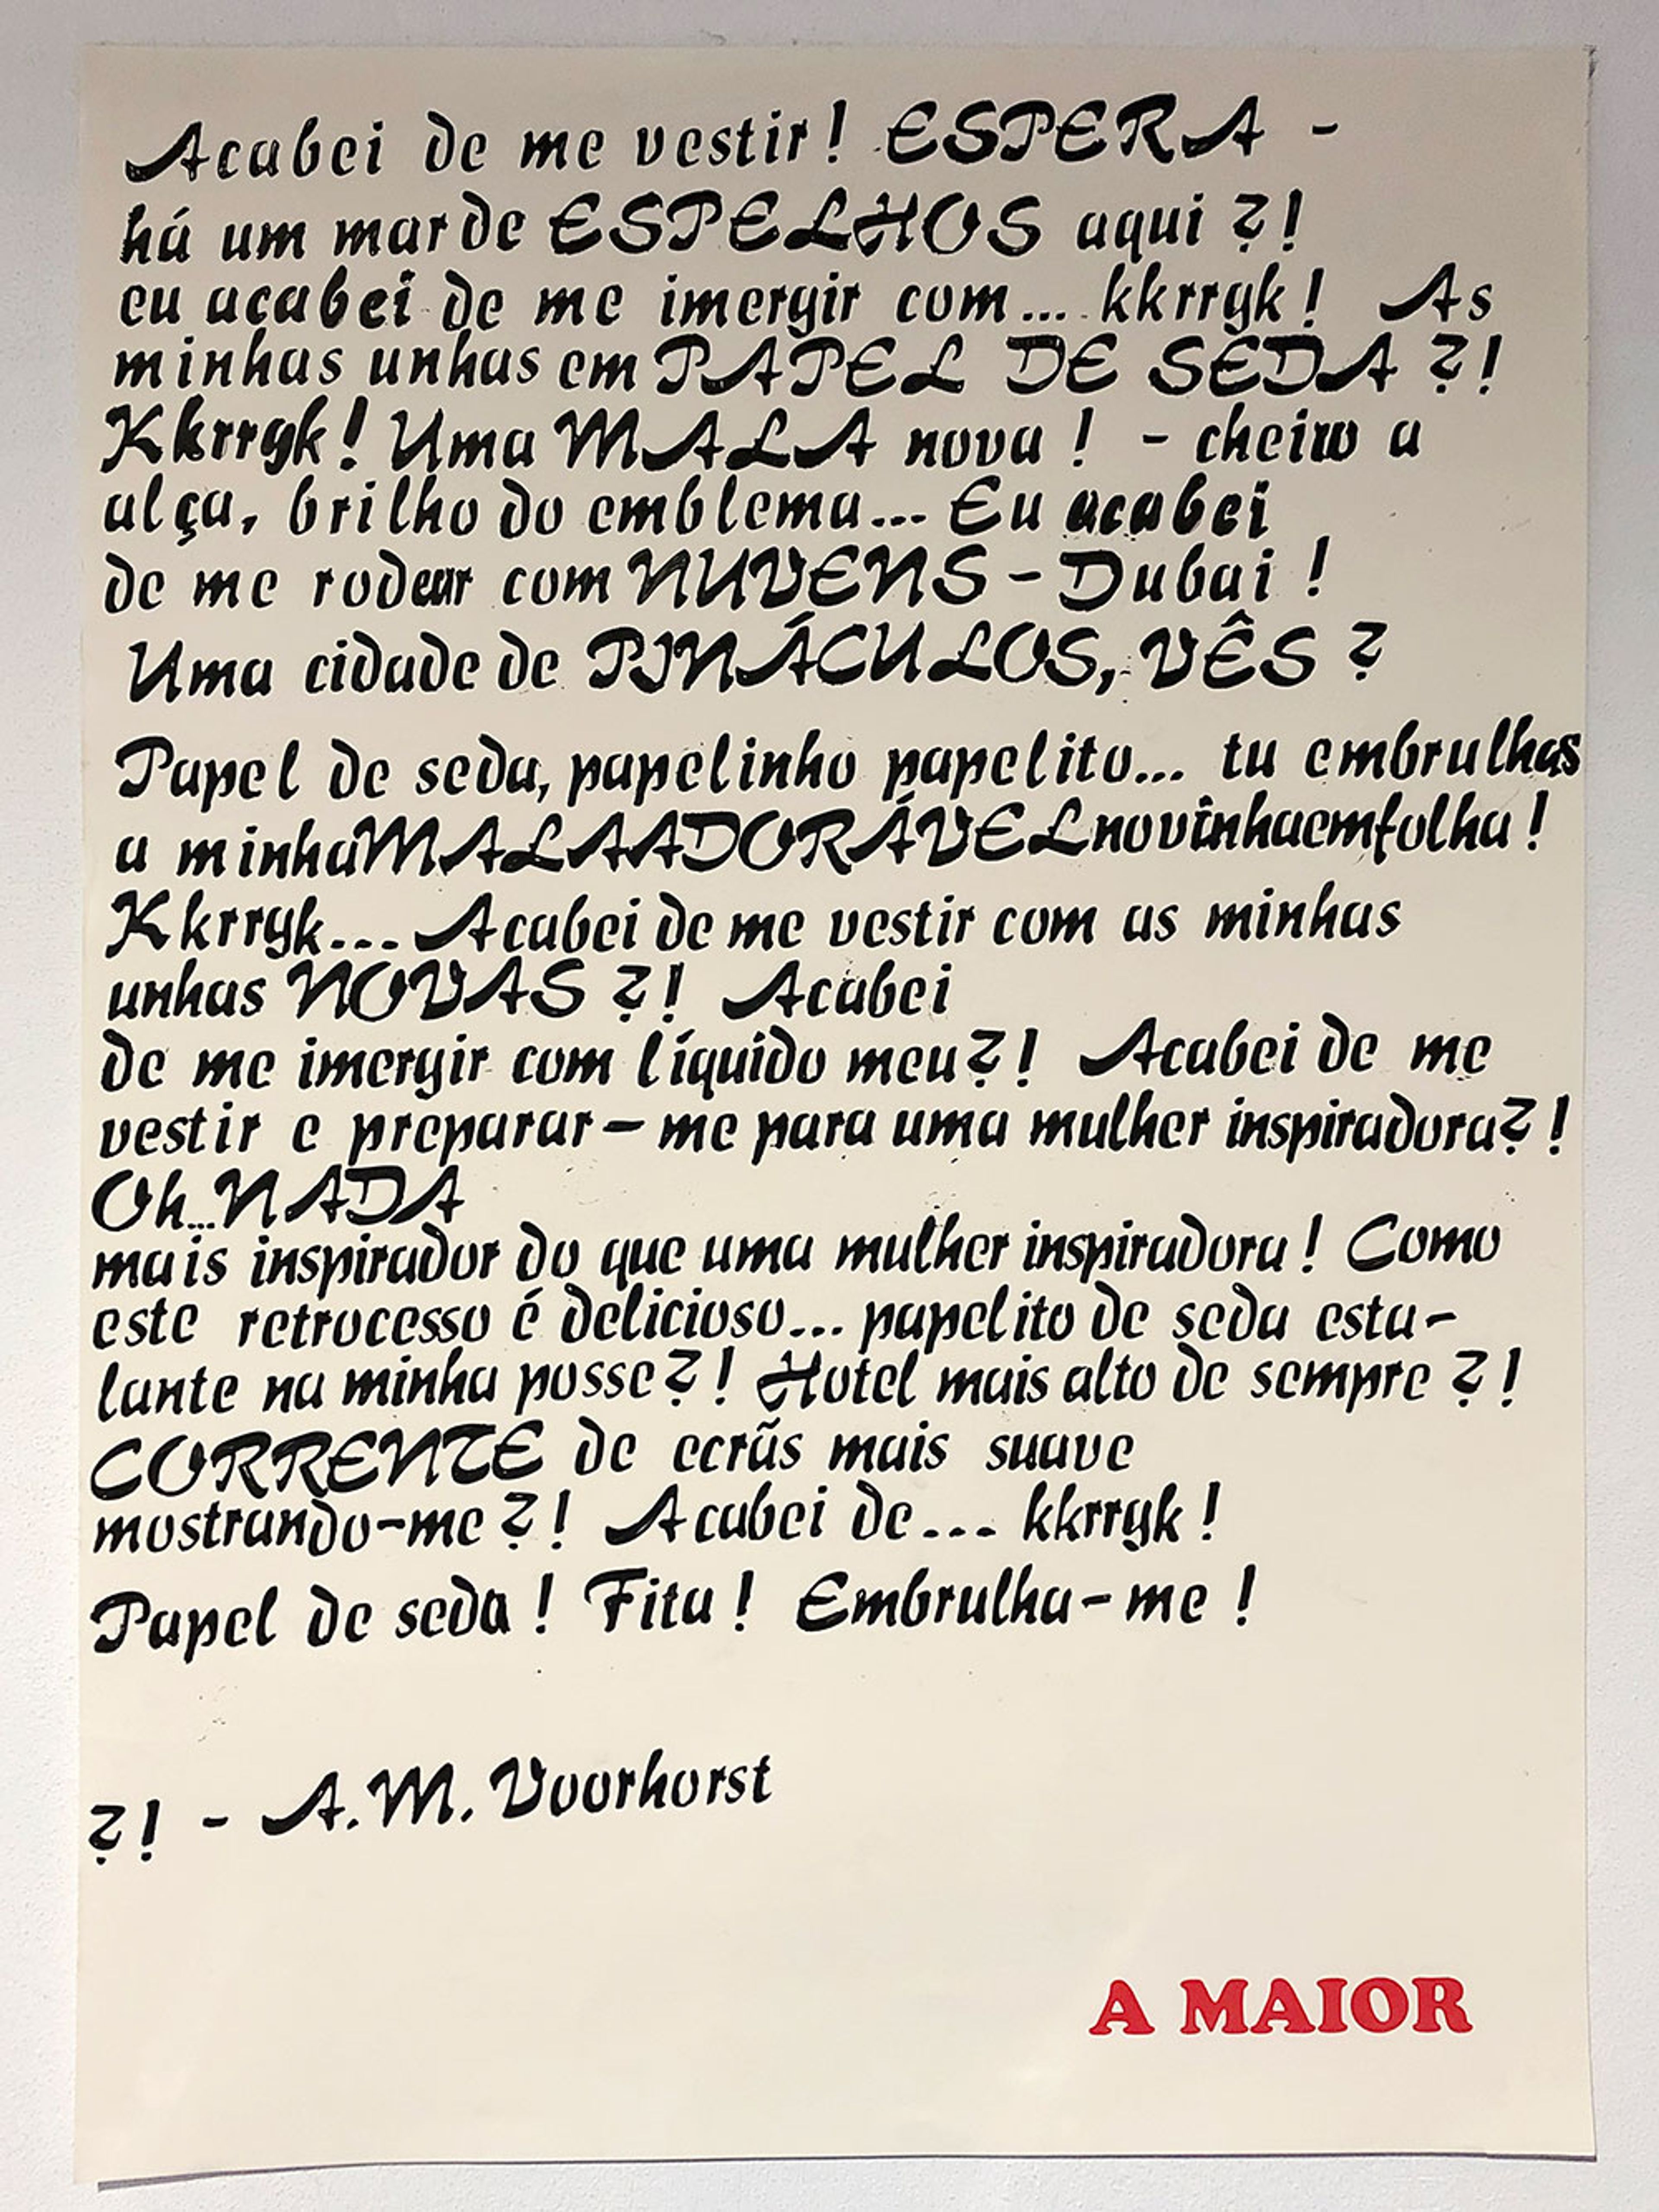 Acabei de me vestir! ESPERA -
há um mar de ESPELHOS aqui ?!
eu acabei de me imergir com... kkrrgk! As
minhas unhas em PAPEL DE SEDA ?!
Kkrrgk! Uma MALA nova! - cheiro a
alça, brilho do emblema... Eu acabei
de me rodear com NUVENS - Dubai!
Uma cidade de PINÁCULOS, VÊS ?
Papel de seda, papelinho papelito... tu embrulhas
a minhaMALAADORÁVELnovinhaemfolha!
Kkrrgk... Acabei de me vestir com as minhas
unhas NOVAS ?! Acabei
de me imergir com líquido meu?! Acabei de me
vestir e preparar-me para uma mulher inspiradora?!
Oh...NADA
mais inspirador do que uma mulher inspiradora! Como
este retrocesso é delicioso... papelito de seda esta-
lante na minha posse?! Hotel mais alto de sempre ?!
CORRENTE de ecrãs mais suave
mostrando-me ?! Acabei de... kkrrgk!
Papel de seda! Fita! Embrulha-me!
?! - A.M. Voorhorst
A MAIOR